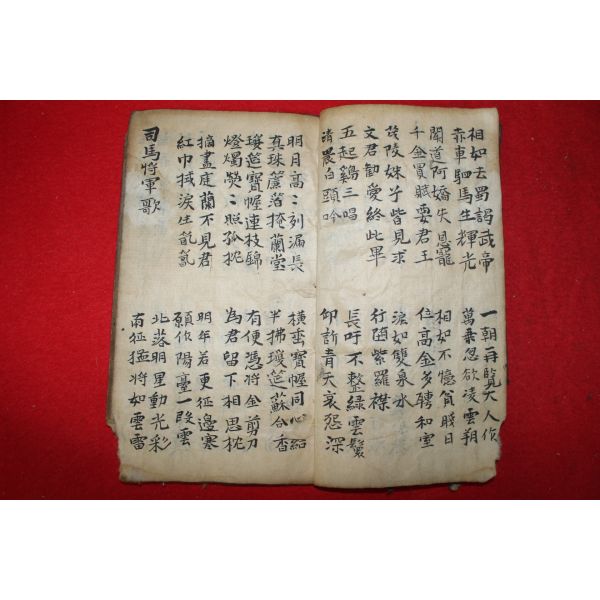 相如去蜀謁武帝
赤車駟馬生輝光
一朝再覽大人作
萬乘忽欲凌雲翔
聞道阿嬌失恩寵
千金買賦要君王
相如不憶貧賤日
位高金多聘和室
茂陵姝子皆見求
文君勸愛終此畢
淚如雙泉水
行墮紫羅襟
五起鷄三唱
清晨白頭吟
長吁不整綠雲鬢
仰訴青天哀怨深
明月高〻列漏長
真珠簾箔掩蘭堂
橫垂寶幄同心結
半拂瓊筵蘇合香
瓊筵寶幄連枝錦
燈燭熒〻照孤
有便憑將金剪刀
為君留下相思枕
摘盡庭蘭不見君
紅巾拭淚生氤氳
明年若更征邊塞
願作陽臺一段雲
司馬將軍歌
北落明星動光彩
南征猛將如雲雷